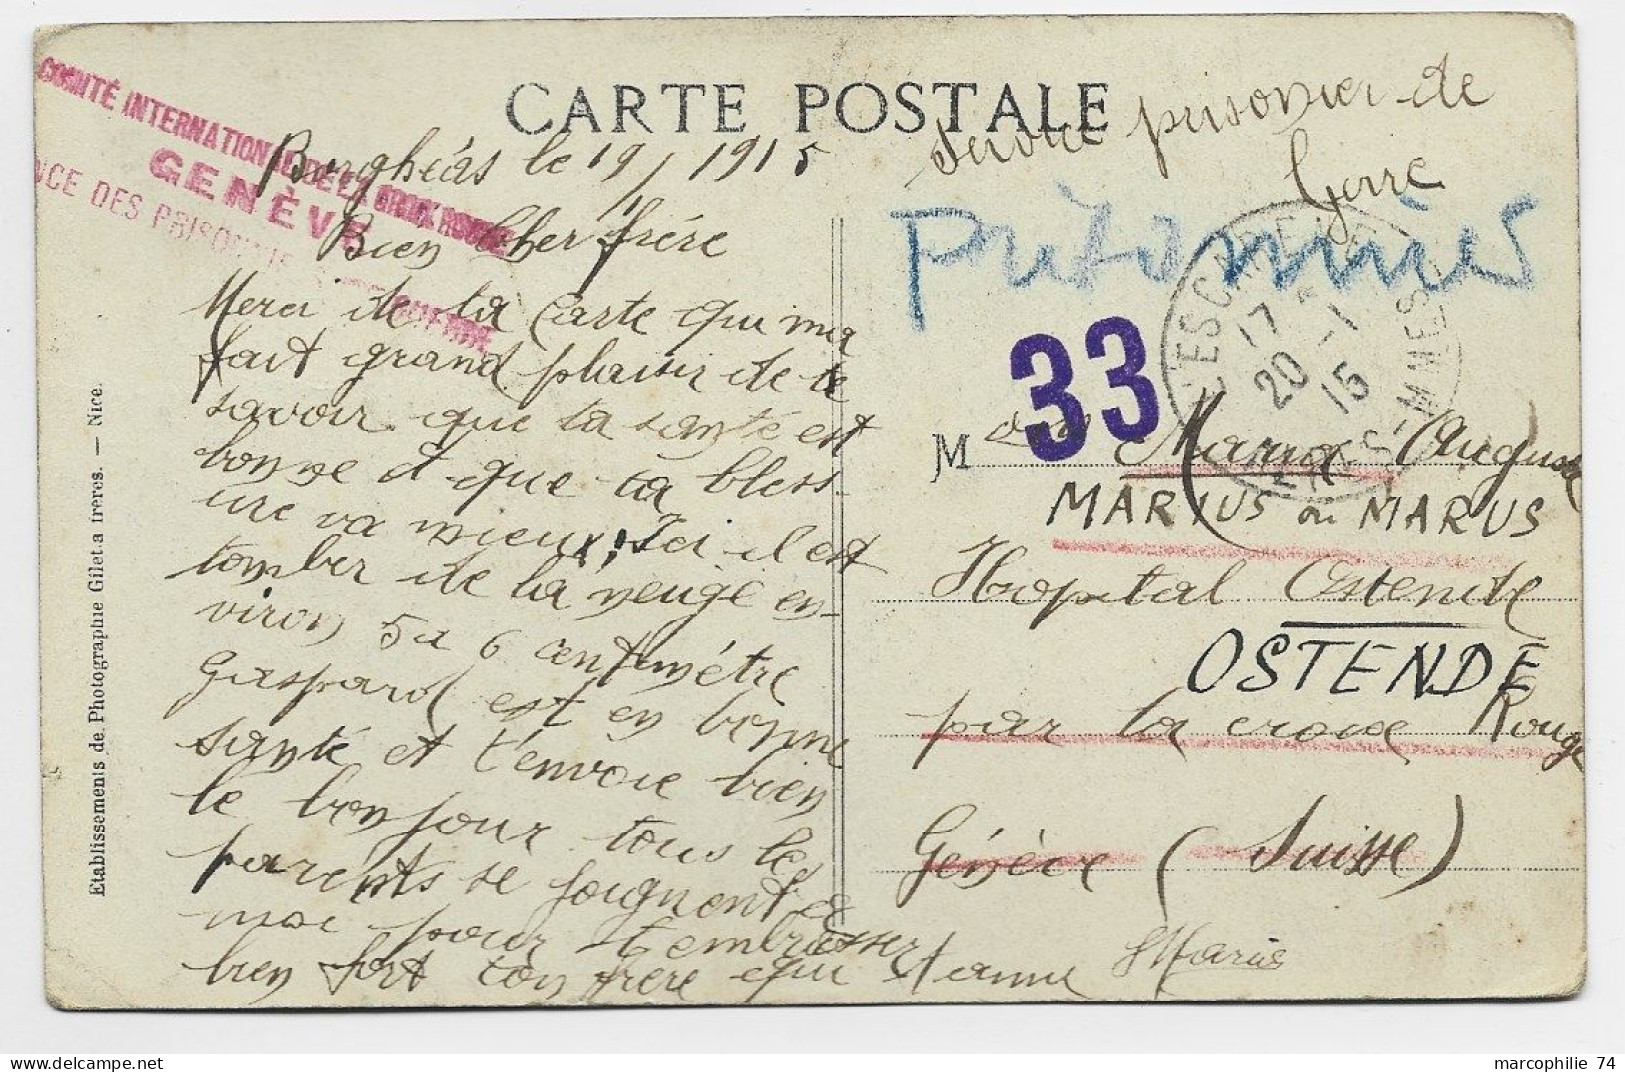 CARTE POSTALE
COMITÉ INTERNATIONAL DE LA CROIX ROUGE
GENÈVE
NCE DES PRISONNIERS DE GUERRE
Berghéas le 19/1 1915
Bien Cher frère
Merci de ta carte qui ma
fait grand plaisir de te
savoir que ta santé est
bonne et que ta bless-
ure va mieux; Ici il est
tomber de la neige en-
viron 5 a 6 centimétre
Gaspard est en bonne
santé et t'envoie bien
le bonjour tous les
parents se soignent et
moi pour t'embrasser
bien fort ton frère qui t'aime
Marius
Service prisonier de
Gerre
Prisonniers
33
L'ESCARENE
17
20 -1
15
ALPES-MMES
M Marius Auguste
MARIUS ou MARUS
Hopital Ostende
OSTENDE
par la croix Rouge
Génève (Suisse)
Etablissements de Photographie Gileta frères. — Nice.
marcophilie 74